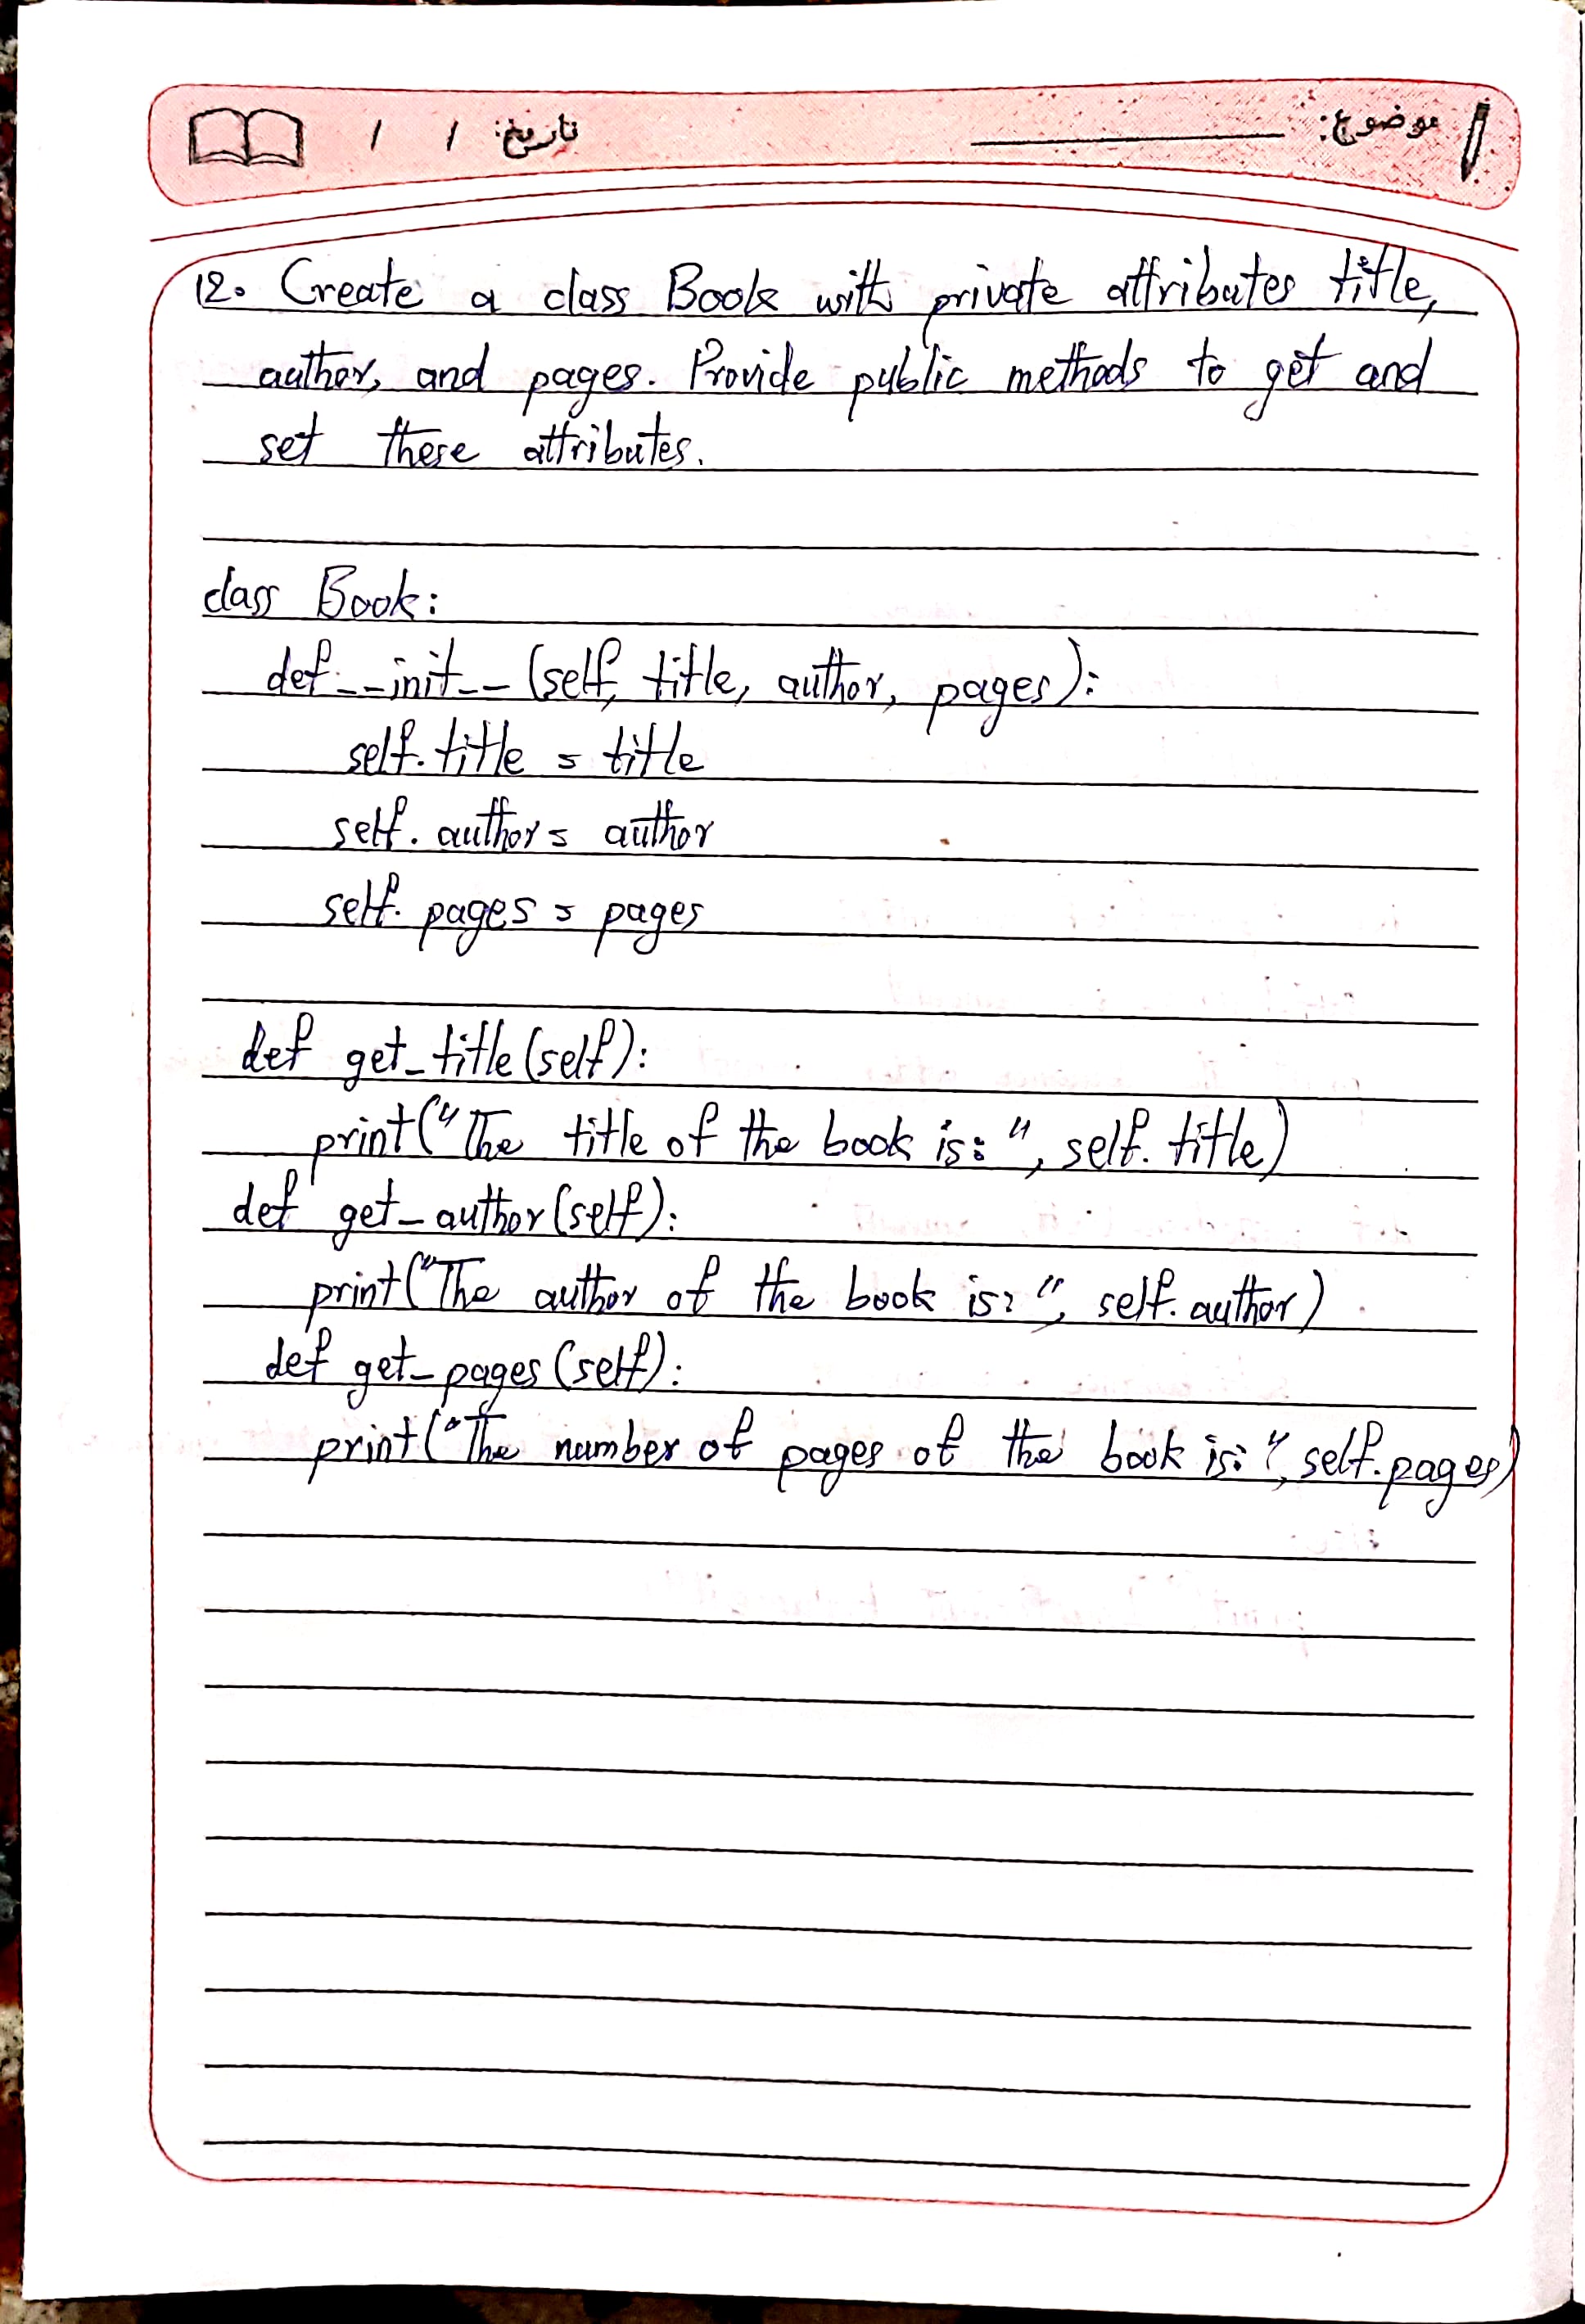 موضوع:
تاریخ: / /
12. Create a class Book with private attributes title,
author, and pages. Provide public methods to get and
set these attributes.
class Book:
def __init__ (self, title, author, pages):
self.title = title
self.author = author
self.pages = pages
def get_title(self):
print("The title of the book is: ", self.title)
def get_author(self):
print("The author of the book is: ", self.author)
def get_pages(self):
print("The number of pages of the book is: ", self.pages)